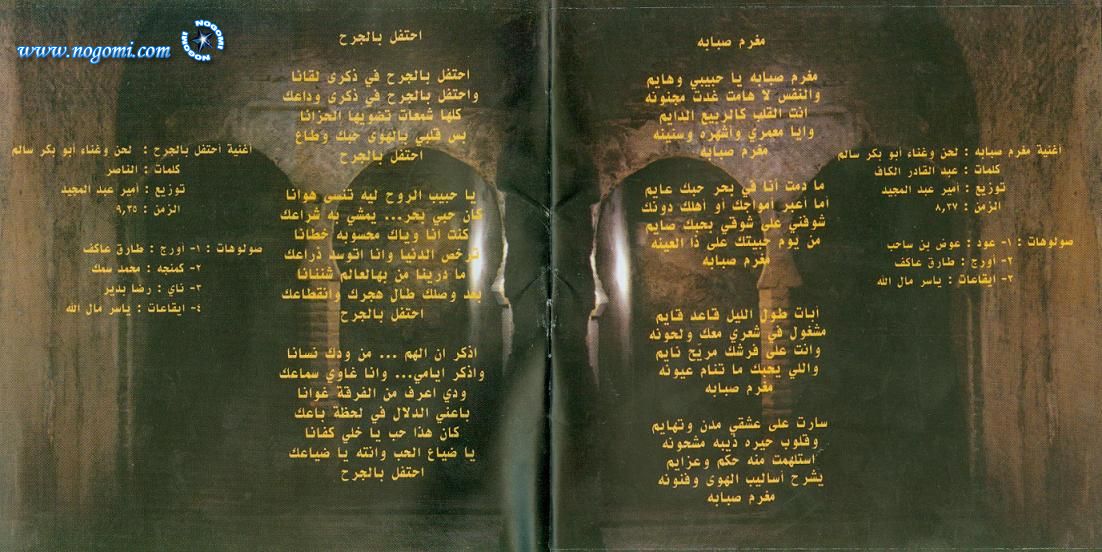 مغرم صبابه
مغرم صبابه يا حبيبي وهايم
والنفس لا هامت غدت مجنونه
انت القلب كالربيع الدايم
وايا معمري وأشهره وسنينه
مغرم صبابه
ما دمت أنا في بحر حبك عايم
أما أعبر أمواجك أو أهلك دونك
شوفني على شوقي بحبك صايم
من يوم حبيتك على ذا العينه
مغرم صبابه
أبات طول الليل قاعد قايم
مشغول في شعري معك ولحونه
وانت على فرشك مريح نايم
واللي يحبك ما تنام عيونه
مغرم صبابه
سارت على عشقي مدن وتهايم
وقلوب حيره ذيبه مشحونه
استلهمت منه حكم وعزايم
يشرح أساليب الهوى وفنونه
مغرم صبابه
أغنية مغرم صبابه : لحن وغناء أبو بكر سالم
كلمات : عبد القادر الكاف
توزيع : أمير عبد المجيد
الزمن : ٨,٣٧
صولوهات : ١- عود : عوض بن ساحب
٢- أورج : طارق عاكف
٣- ايقاعات : ياسر مال الله
احتفل بالجرح
احتفل بالجرح في ذكرى لقانا
واحتفل بالجرح في ذكرى وداعك
كلها شمعات تضويها الحزانا
بس قلبي بالهوى حبك وطاع
احتفل بالجرح
يا حبيب الروح ليه تنسى هوانا
كان حبي بحر... يمشي به شراعك
كنت انا وياك محسوبه خطانا
ترخص الدنيا وانا اتوسد ذراعك
ما درينا من بهالعالم شننانا
بعد وصلك طال هجرك وانقطاعك
احتفل بالجرح
اذكر ان الهم ... من ودك نسانا
واذكر ايامي... وانا غاوي سماعك
ودي اعرف من الفرقة غوانا
باعني الدلال في لحظة باعك
كان هذا حب يا خلي كفانا
يا ضياع الحب وانته يا ضياعك
احتفل بالجرح
أغنية أحتفل بالجرح : لحن وغناء أبو بكر سالم
كلمات : الناصر
توزيع : أمير عبد المجيد
الزمن : ٩,٣٥
صولوهات : ١- أورج : طارق عاكف
٢- كمنجه : محمد سمك
٣- ناي : رضا بدير
٤- ايقاعات : ياسر مال الله
www.nogomi.com
NOGOMI
NOGOMI